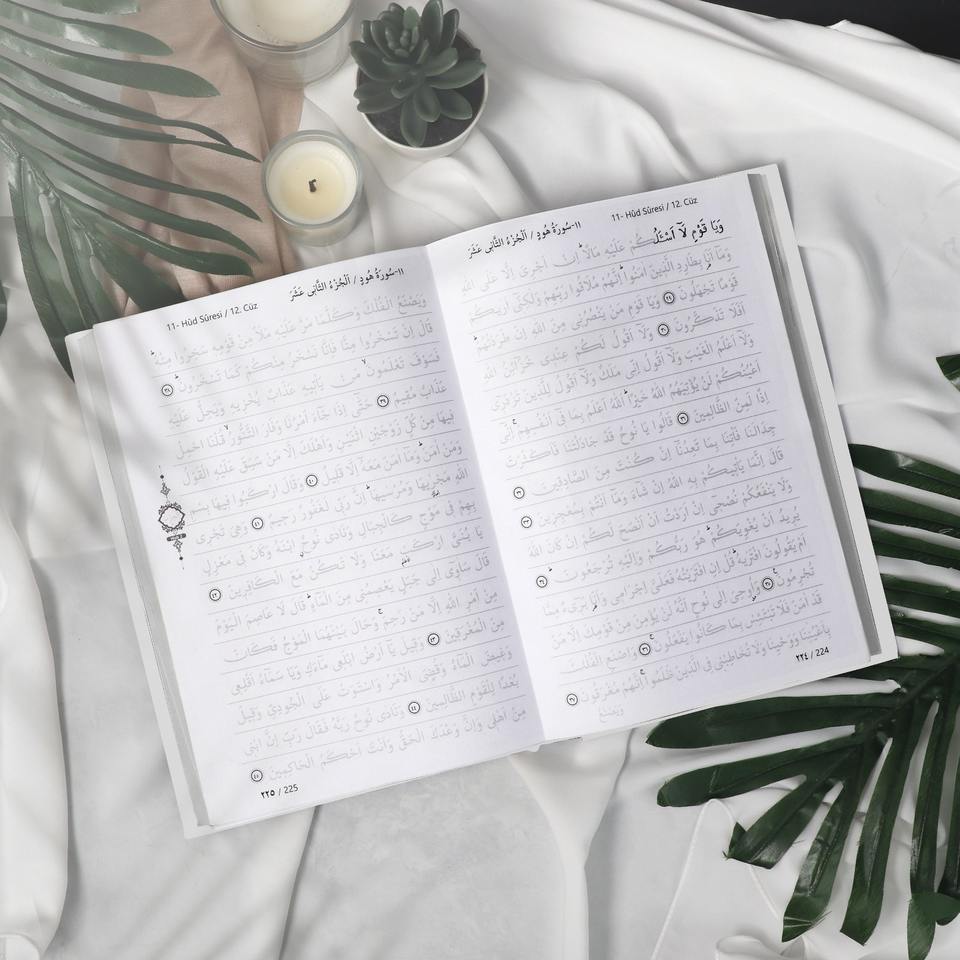 ١١-سُورَةُ هُودٍ / اَلْجُزْءُ الثَّانِى عَشَرَ 11- Hûd Sûresi / 12. Cüz
وَيَا قَوْمِ لَٓا اَسْـَٔلُكُمْ عَلَيْهِ مَالًاۜ اِنْ اَجْرِىَ اِلَّا عَلَى اللّٰهِ
وَمَٓا اَنَا بِطَارِدِ الَّذِينَ اٰمَنُواۜ اِنَّهُمْ مُلَاقُوا رَبِّهِمْ وَلٰكِنِّٓى اَرٰيكُمْ
قَوْمًا تَجْهَلُونَ ٢٩ وَيَا قَوْمِ مَنْ يَنْصُرُنِى مِنَ اللّٰهِ اِنْ طَرَدْتُهُمْۜ
اَفَلَا تَذَكَّرُونَ ٣٠ وَلَٓا اَقُولُ لَكُمْ عِنْدِى خَزَٓائِنُ اللّٰهِ
وَلَٓا اَعْلَمُ الْغَيْبَ وَلَٓا اَقُولُ اِنِّى مَلَكٌ وَلَٓا اَقُولُ لِلَّذِينَ تَزْدَرِٓى
اَعْيُنُكُمْ لَنْ يُؤْتِيَهُمُ اللّٰهُ خَيْرًاۜ اَللّٰهُ اَعْلَمُ بِمَا فِٓى اَنْفُسِهِمْۚ اِنِّٓى
اِذًا لَمِنَ الظَّالِمِينَ ٣١ قَالُوا يَا نُوحُ قَدْ جَادَلْتَنَا فَاَكْثَرْتَ
جِدَالَنَا فَأْتِنَا بِمَا تَعِدُنَٓا اِنْ كُنْتَ مِنَ الصَّادِقِينَ ٣٢
قَالَ اِنَّمَا يَأْتِيكُمْ بِهِ اللّٰهُ اِنْ شَٓاءَ وَمَٓا اَنْتُمْ بِمُعْجِزِينَ ٣٣
وَلَا يَنْفَعُكُمْ نُصْحِٓى اِنْ اَرَدْتُ اَنْ اَنْصَحَ لَكُمْ اِنْ كَانَ اللّٰهُ
يُرِيدُ اَنْ يُغْوِيَكُمْۜ هُوَ رَبُّكُمْ وَاِلَيْهِ تُرْجَعُونَۜ ٣٤
اَمْ يَقُولُونَ افْتَرٰيهُۜ قُلْ اِنِ افْتَرَيْتُهُ فَعَلَىَّ اِجْرَامِى وَاَنَا بَرِٓىءٌ مِمَّا
تُجْرِمُونَ۟ ٣٥ وَاُو۫حِىَ اِلٰى نُوحٍ اَنَّهُ لَنْ يُؤْمِنَ مِنْ قَوْمِكَ اِلَّا مَنْ
قَدْ اٰمَنَ فَلَا تَبْتَئِسْ بِمَا كَانُوا يَفْعَلُونَۚ ٣٦ وَاصْنَعِ الْفُلْكَ
بِاَعْيُنِنَا وَوَحْيِنَا وَلَا تُخَاطِبْنِى فِى الَّذِينَ ظَلَمُواۚ اِنَّهُمْ مُغْرَقُونَ ٣٧
وَيَصْنَعُ
٢٢٤ / 224
١١-سُورَةُ هُودٍ / اَلْجُزْءُ الثَّانِى عَشَرَ 11- Hûd Sûresi / 12. Cüz
وَيَصْنَعُ الْفُلْكَ وَكُلَّمَا مَرَّ عَلَيْهِ مَلَأٌ مِنْ قَوْمِهِ سَخِرُوا مِنْهُۜ
قَالَ اِنْ تَسْخَرُوا مِنَّا فَاِنَّا نَسْخَرُ مِنْكُمْ كَمَا تَسْخَرُونَۜ ٣٨
فَسَوْفَ تَعْلَمُونَۙ مَنْ يَأْتِيهِ عَذَابٌ يُخْزِيهِ وَيَحِلُّ عَلَيْهِ
عَذَابٌ مُقِيمٌ ٣٩ حَتّٰٓى اِذَا جَٓاءَ اَمْرُنَا وَفَارَ التَّنُّورُۙ قُلْنَا احْمِلْ
فِيهَا مِنْ كُلٍّ زَوْجَيْنِ اثْنَيْنِ وَاَهْلَكَ اِلَّا مَنْ سَبَقَ عَلَيْهِ الْقَوْلُ
وَمَنْ اٰمَنَۜ وَمَٓا اٰمَنَ مَعَهُٓ اِلَّا قَلِيلٌ ٤٠ وَقَالَ ارْكَبُوا فِيهَا بِسْمِ
اللّٰهِ مَجْرٰۭيهَا وَمُرْسٰيهَاۜ اِنَّ رَبِّى لَغَفُورٌ رَحِيمٌ ٤١ وَهِىَ تَجْرِى
بِهِمْ فِى مَوْجٍ كَالْجِبَالِ وَنَادٰى نُوحٌۨ ابْنَهُ وَكَانَ فِى مَعْزِلٍ
يَا بُنَىَّ ارْكَبْ مَعَنَا وَلَا تَكُنْ مَعَ الْكَافِرِينَ ٤٢
قَالَ سَاٰوِٓى اِلٰى جَبَلٍ يَعْصِمُنِى مِنَ الْمَٓاءِۜ قَالَ لَا عَاصِمَ الْيَوْمَ
مِنْ اَمْرِ اللّٰهِ اِلَّا مَنْ رَحِمَۚ وَحَالَ بَيْنَهُمَا الْمَوْجُ فَكَانَ
مِنَ الْمُغْرَقِينَ ٤٣ وَقِيلَ يَٓا اَرْضُ ابْلَعِى مَٓاءَكِ وَيَا سَمَٓاءُ اَقْلِعِى
وَغِيضَ الْمَٓاءُ وَقُضِىَ الْاَمْرُ وَاسْتَوَتْ عَلَى الْجُودِىِّ وَقِيلَ
بُعْدًا لِلْقَوْمِ الظَّالِمِينَ ٤٤ وَنَادٰى نُوحٌ رَبَّهُ فَقَالَ رَبِّ اِنَّ ابْنِى
مِنْ اَهْلِى وَاِنَّ وَعْدَكَ الْحَقُّ وَاَنْتَ اَحْكَمُ الْحَاكِمِينَ ٤٥
٢٢٥ / 225